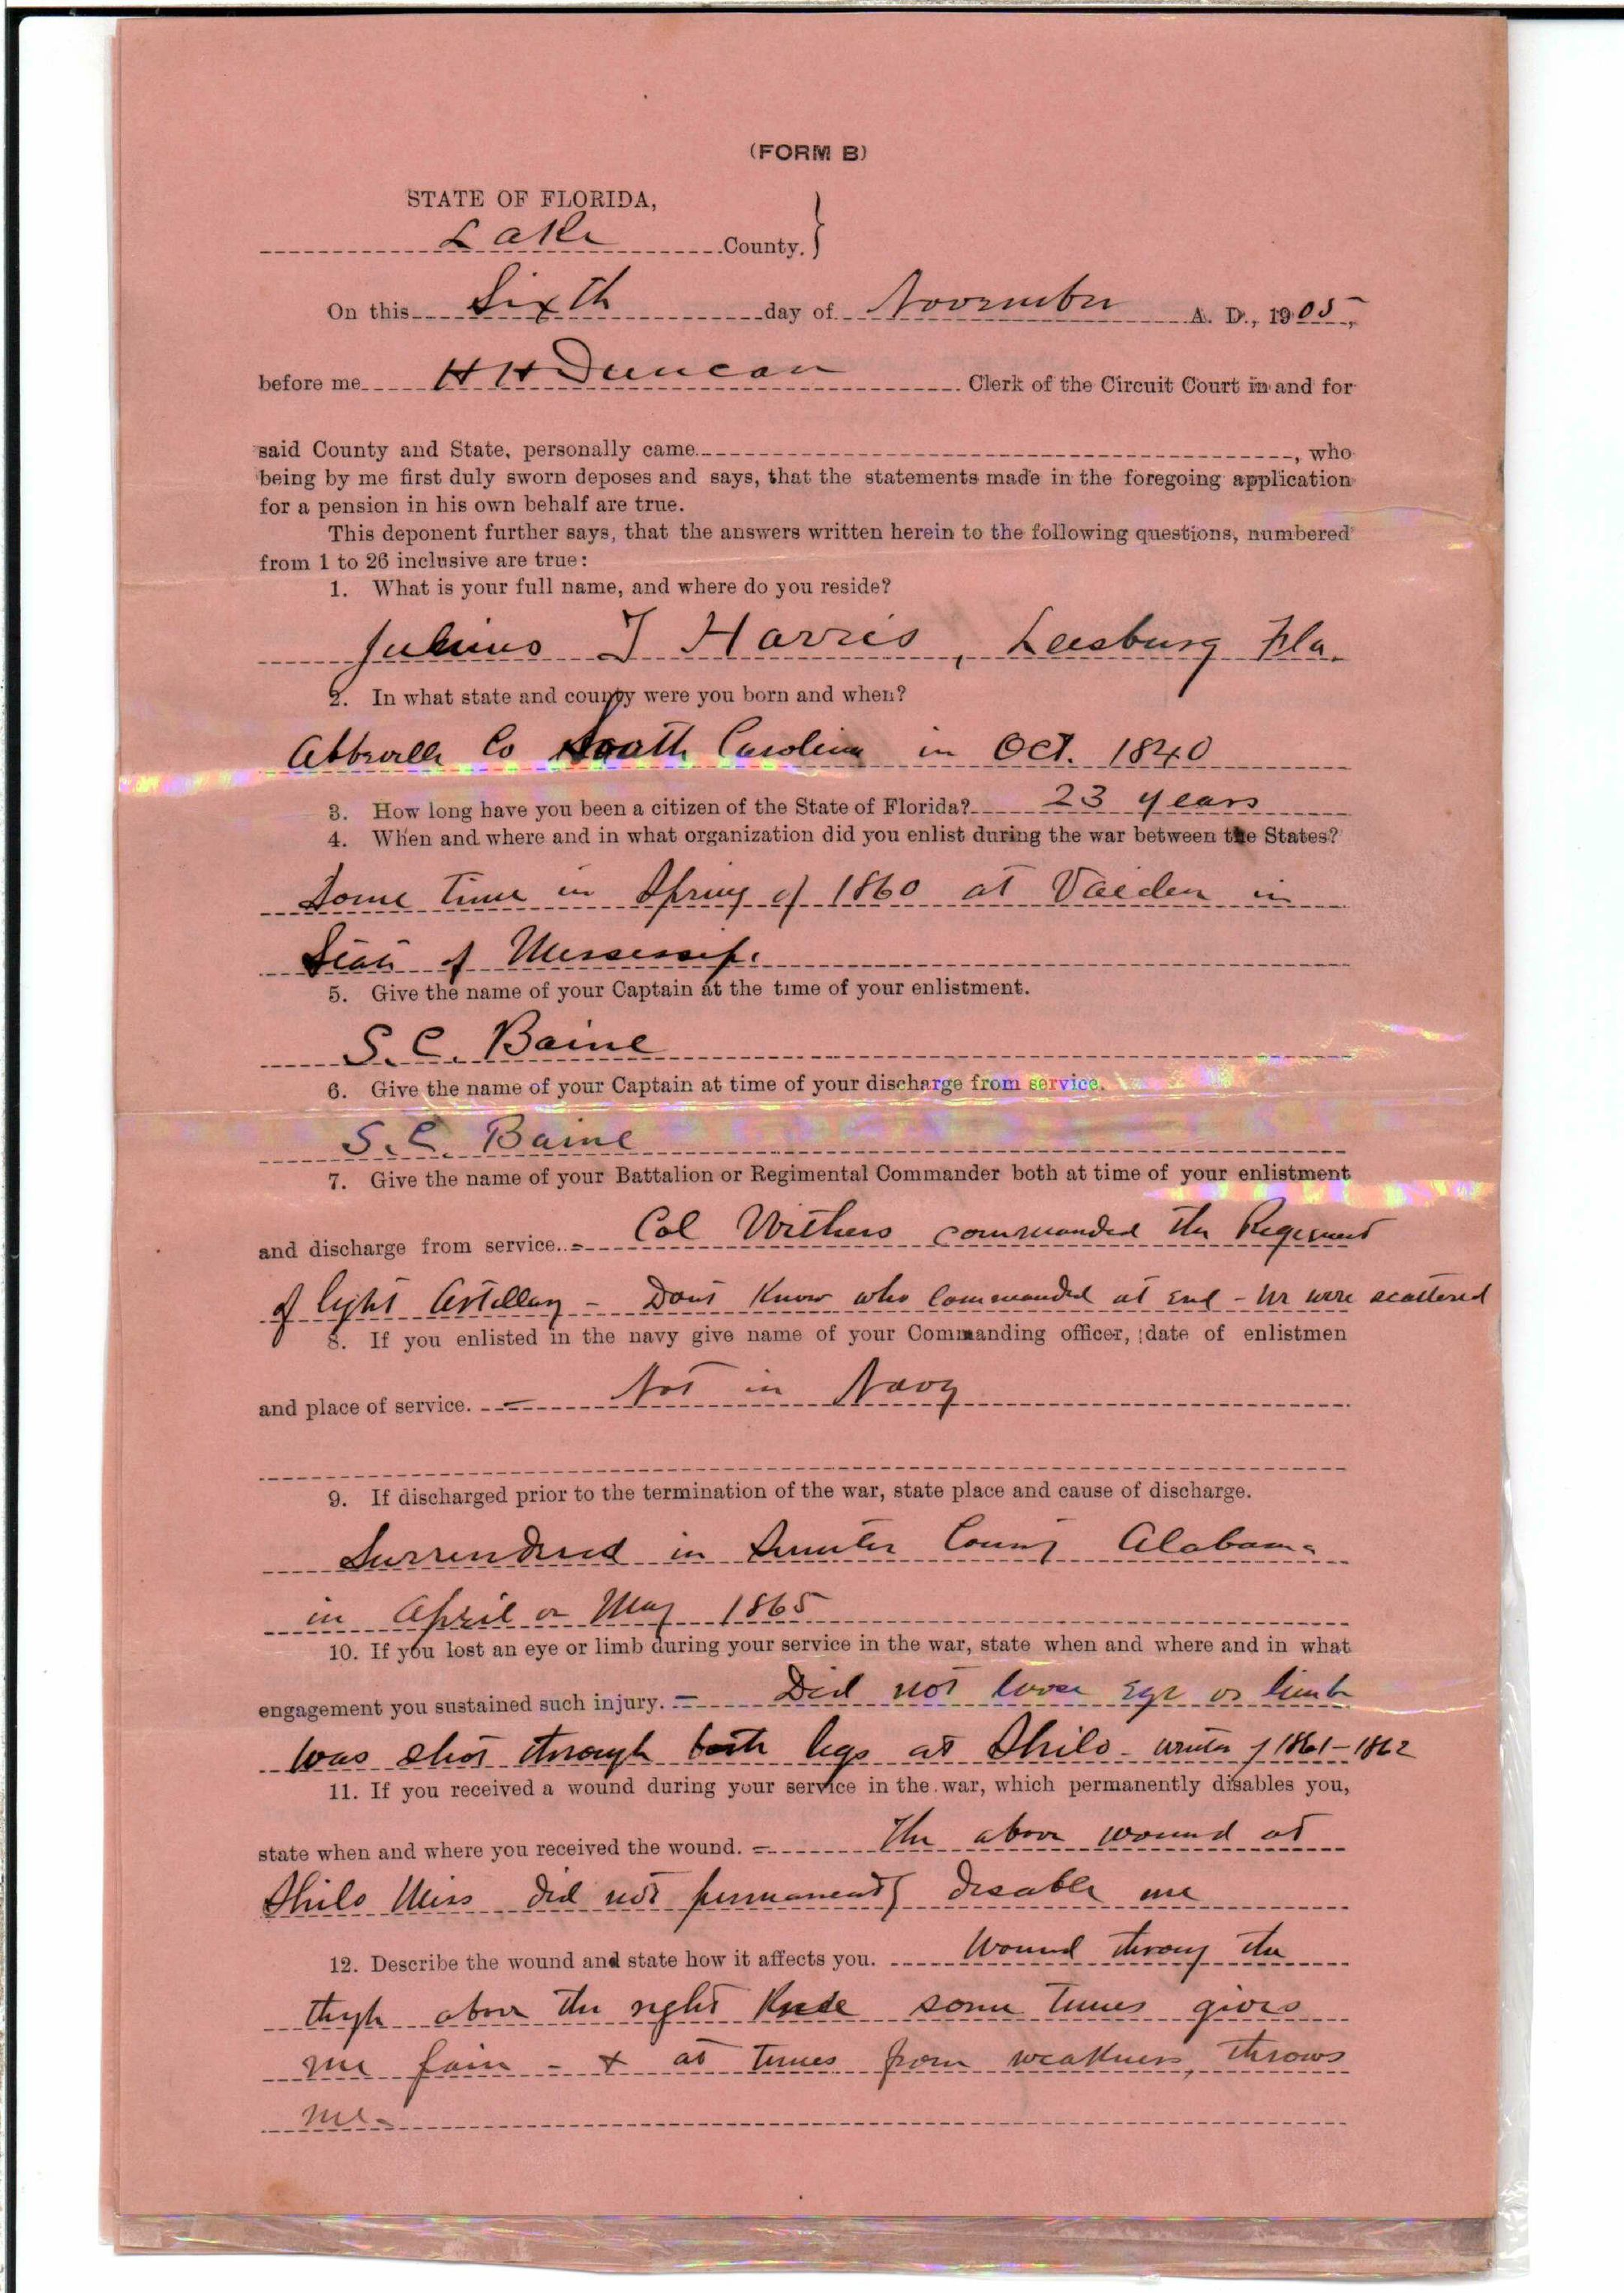 (FORM B)
STATE OF FLORIDA,
Lake County. }
On this Sixth day of November A. D., 1905,
before me H H Duncan Clerk of the Circuit Court in and for
said County and State, personally came , who
being by me first duly sworn deposes and says, that the statements made in the foregoing application
for a pension in his own behalf are true.
This deponent further says, that the answers written herein to the following questions, numbered
from 1 to 26 inclusive are true:
1. What is your full name, and where do you reside?
Julius T Harris, Leesburg Fla.
2. In what state and county were you born and when?
Abbeville Co South Carolina in Oct. 1840
3. How long have you been a citizen of the State of Florida? 23 years
4. When and where and in what organization did you enlist during the war between the States?
Some time in Spring of 1860 at Vaiden in
State of Mississipi
5. Give the name of your Captain at the time of your enlistment.
S. C. Baine
6. Give the name of your Captain at time of your discharge from service.
S. C. Baine
7. Give the name of your Battalion or Regimental Commander both at time of your enlistment
and discharge from service. Col Withers commanded the Regiment
of light Artillery - Dont Know who Commanded at End - We were scattered
8. If you enlisted in the navy give name of your Commanding officer, date of enlistmen
and place of service. - Not in Navy
9. If discharged prior to the termination of the war, state place and cause of discharge.
Surrendered in Sumter County Alabama
in April or May 1865
10. If you lost an eye or limb during your service in the war, state when and where and in what
engagement you sustained such injury. - Did not loose Eye or limb
Was shot through both legs at Shilo - winter of 1861-1862
11. If you received a wound during your service in the war, which permanently disables you,
state when and where you received the wound. - The above wound at
Shilo Miss did not permanently disable me
12. Describe the wound and state how it affects you. Wound throug the
thigh above the right Knee some times gives
me pain - + at times from weakness, throws
me -